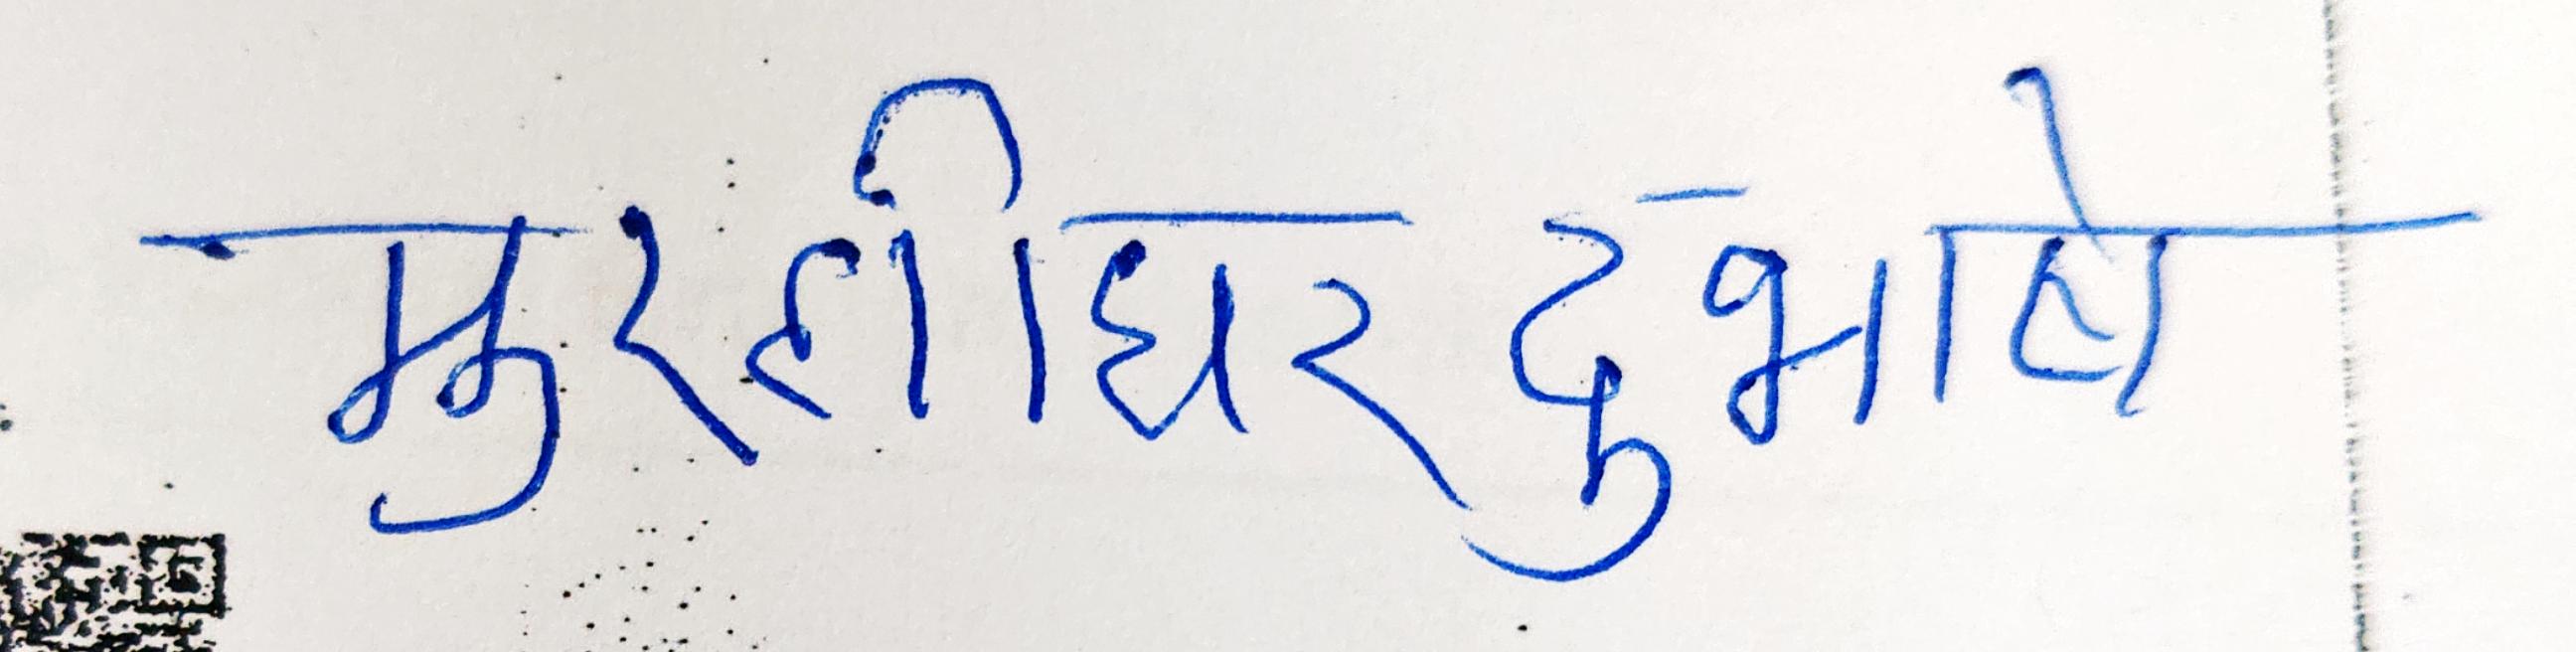 मुरलीधर दुभाषे